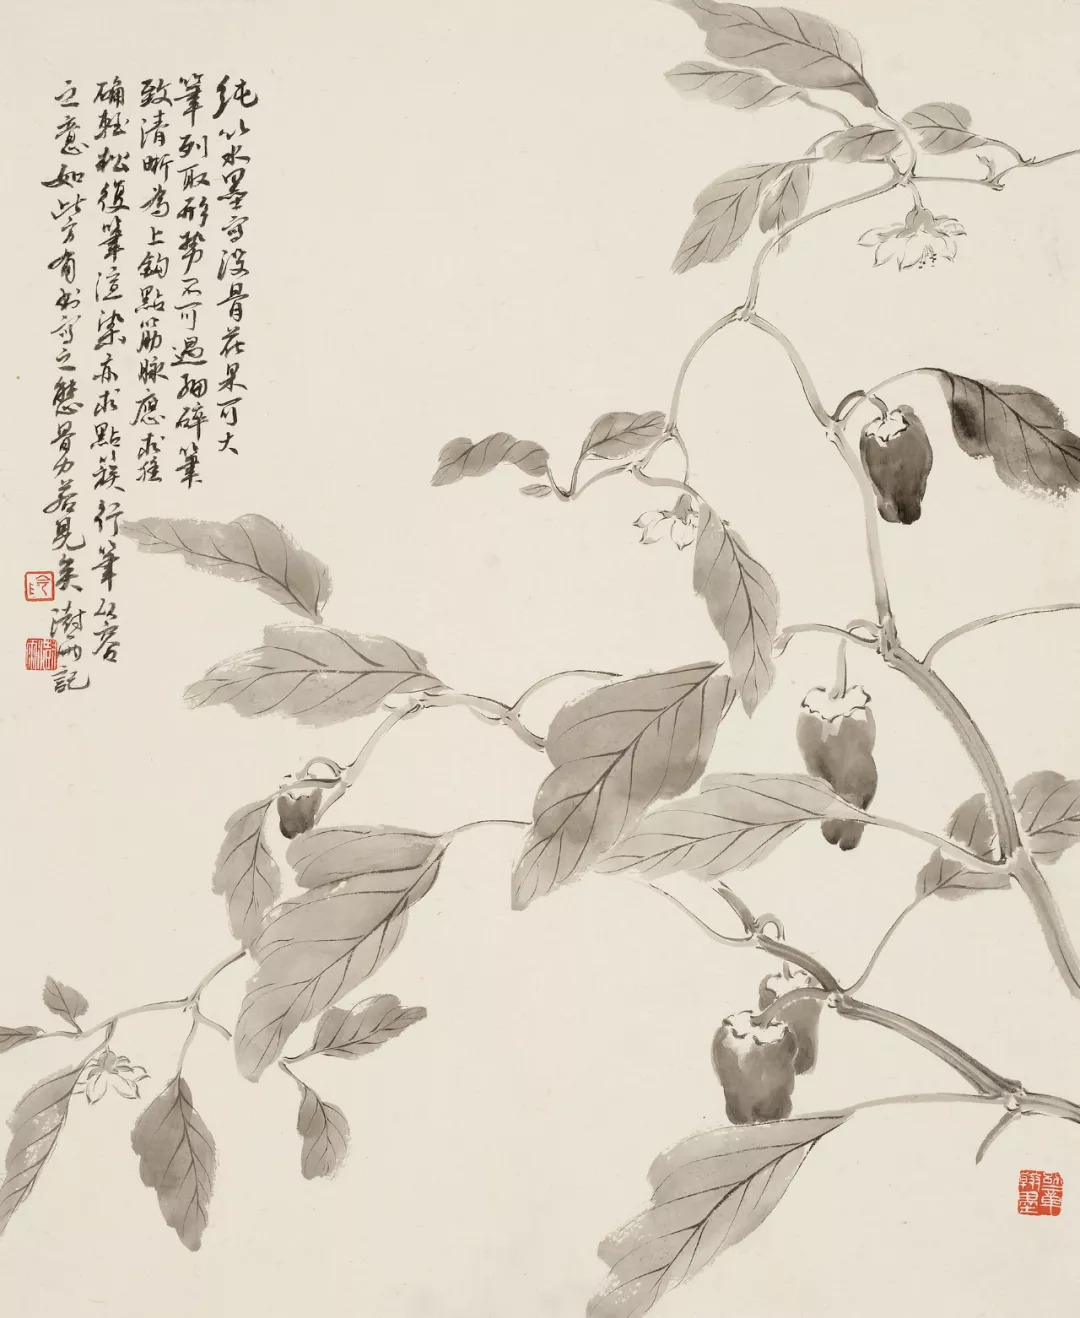 純以水墨寫没骨花果可大
筆列取形勢不可過細碎筆
致清晰為上鈎點筋脉應求准
确輕松復筆渲染亦求點簇行筆從容
之意如此方有書寫之態骨力若見矣 澍雨記